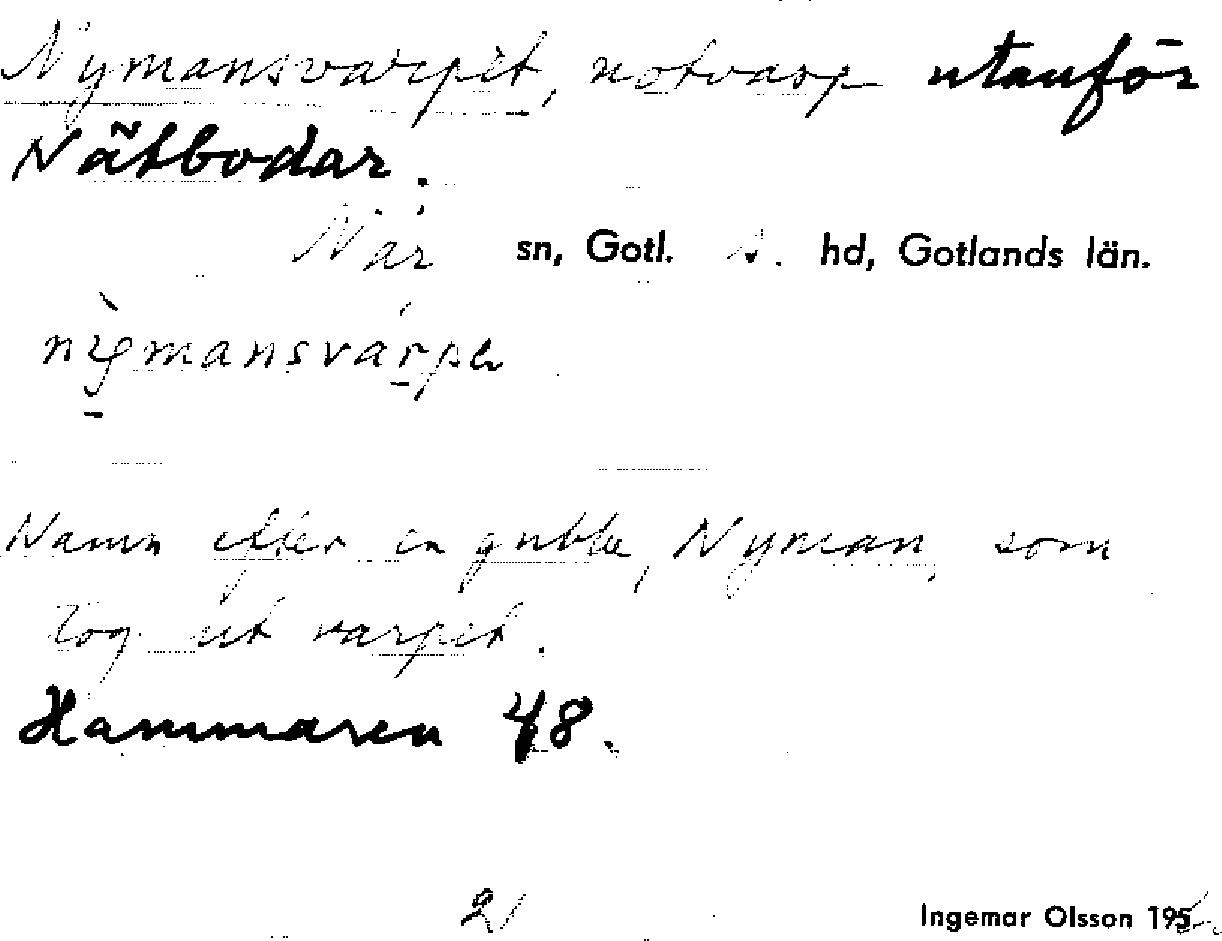 Nymansvarpet, notvarp utanför
Nätbodar.
När sn, Gotl. s. hd, Gotlands län.
Namn efter en gubbe, Nyman, som
tog ut varpet.
Hammaren 48.
21
Ingemar Olsson 195